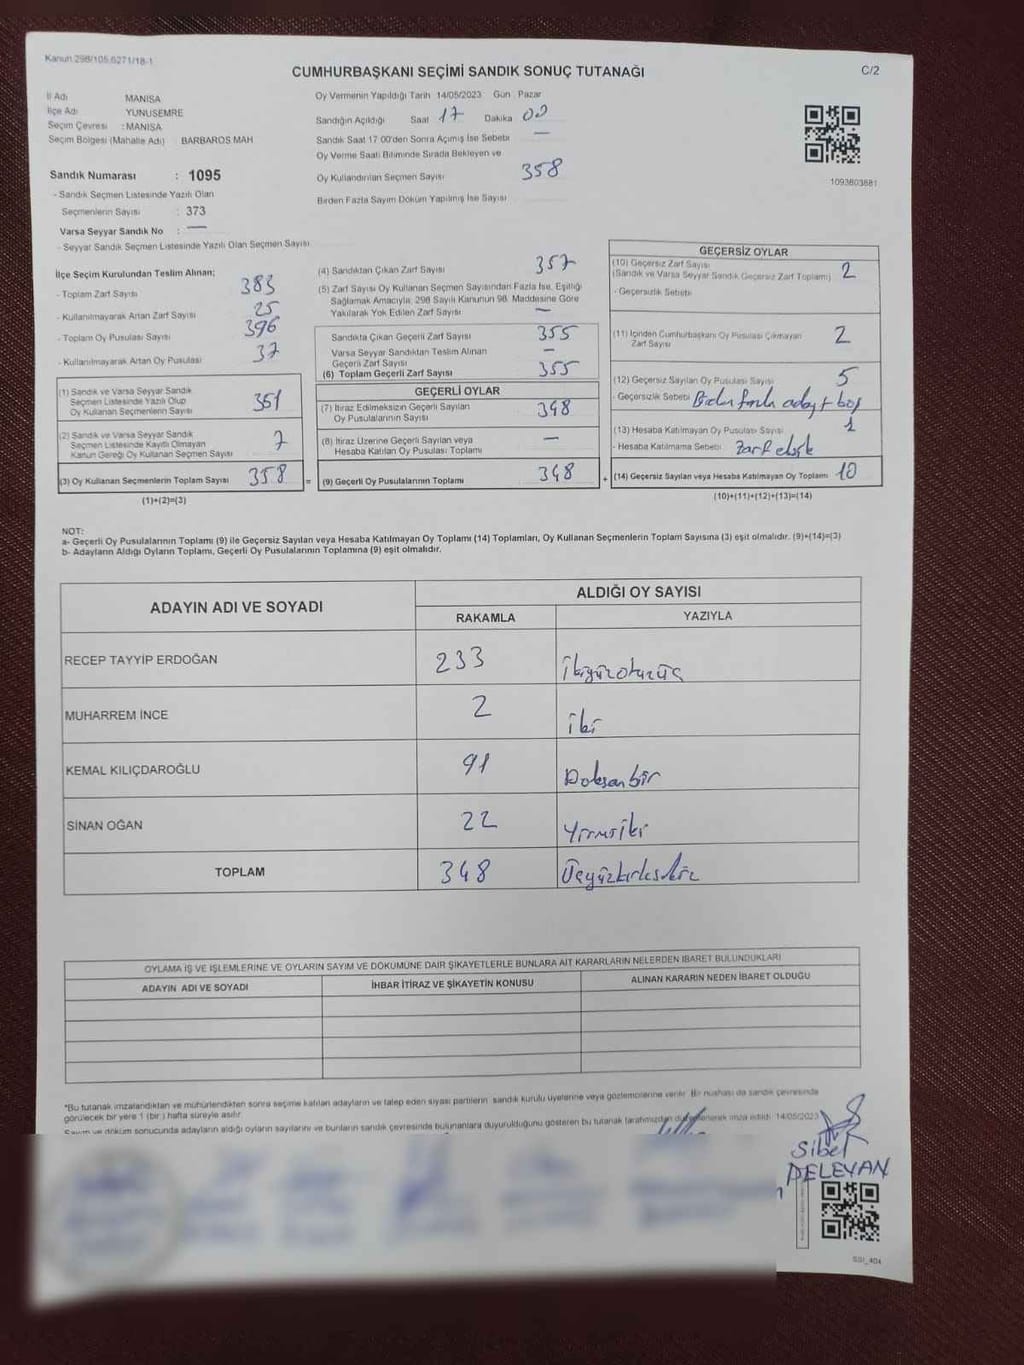 Kanun 298/105,6271/18-1
CUMHURBAŞKANI SEÇİMİ SANDIK SONUÇ TUTANAĞI
C/2
İl Adı MANİSA
İlçe Adı YUNUSEMRE
Seçim Çevresi : MANİSA
Seçim Bölgesi (Mahalle Adı) BARBAROS MAH
Oy Vermenin Yapıldığı Tarih 14/05/2023 Gün Pazar
Sandığın Açıldığı Saat 17 Dakika 00
Sandık Saat 17 00'den Sonra Açımış İse Sebebi —
Oy Verme Saati Bitiminde Sırada Bekleyen ve
Oy Kullandırılan Seçmen Sayısı 358
Birden Fazla Sayım Döküm Yapılmış İse Sayısı
1093803881
Sandık Numarası : 1095
- Sandık Seçmen Listesinde Yazılı Olan
Seçmenlerin Sayısı : 373
Varsa Seyyar Sandık No : —
- Seyyar Sandık Seçmen Listesinde Yazılı Olan Seçmen Sayısı
İlçe Seçim Kurulundan Teslim Alınan;
- Toplam Zarf Sayısı 383
- Kullanılmayarak Artan Zarf Sayısı 25
- Toplam Oy Pusulası Sayısı 396
- Kullanılmayarak Artan Oy Pusulası 37
(1) Sandık ve Varsa Seyyar Sandık
Seçmen Listesinde Yazılı Olup
Oy Kullanan Seçmenlerin Sayısı 351
(2) Sandık ve Varsa Seyyar Sandık
Seçmen Listesinde Kayıtlı Olmayan
Kanun Gereği Oy Kullanan Seçmen Sayısı 7
(3) Oy Kullanan Seçmenlerin Toplam Sayısı 358 =
(1)+(2)=(3)
(4) Sandıktan Çıkan Zarf Sayısı 357
(5) Zarf Sayısı Oy Kullanan Seçmen Sayısından Fazla İse, Eşitliği
Sağlamak Amacıyla, 298 Sayılı Kanunun 98. Maddesine Göre
Yakılarak Yok Edilen Zarf Sayısı —
Sandıkta Çıkan Geçerli Zarf Sayısı 355
Varsa Seyyar Sandıktan Teslim Alınan
Geçerli Zarf Sayısı —
(6) Toplam Geçerli Zarf Sayısı 355
GEÇERLİ OYLAR
(7) İtiraz Edilmeksizin Geçerli Sayılan
Oy Pusulalarının Sayısı 348
(8) İtiraz Üzerine Geçerli Sayılan veya
Hesaba Katılan Oy Pusulası Toplamı —
(9) Geçerli Oy Pusulalarının Toplamı 348 +
GEÇERSİZ OYLAR
(10) Geçersiz Zarf Sayısı
(Sandık ve Varsa Seyyar Sandık Geçersiz Zarf Toplamı) 2
- Geçersizlik Sebebi
(11) İçinden Cumhurbaşkanı Oy Pusulası Çıkmayan
Zarf Sayısı 2
(12) Geçersiz Sayılan Oy Pusulası Sayısı 5
- Geçersizlik Sebebi Birden fazla aday + boş
(13) Hesaba Katılmayan Oy Pusulası Sayısı 1
- Hesaba Katılmama Sebebi Zarf eksik
(14) Geçersiz Sayılan veya Hesaba Katılmayan Oy Toplamı 10
(10)+(11)+(12)+(13)=(14)
NOT:
a- Geçerli Oy Pusulalarının Toplamı (9) ile Geçersiz Sayılan veya Hesaba Katılmayan Oy Toplamı (14) Toplamları, Oy Kullanan Seçmenlerin Toplam Sayısına (3) eşit olmalıdır. (9)+(14)=(3)
b- Adayların Aldığı Oyların Toplamı, Geçerli Oy Pusulalarının Toplamına (9) eşit olmalıdır.
ADAYIN ADI VE SOYADI
ALDIĞI OY SAYISI
RAKAMLA YAZIYLA
RECEP TAYYİP ERDOĞAN 233 İkiyüzotuzüç
MUHARREM İNCE 2 iki
KEMAL KILIÇDAROĞLU 91 Doksanbir
SİNAN OĞAN 22 Yirmiiki
TOPLAM 348 Üçyüzkırksekiz
OYLAMA İŞ VE İŞLEMLERİNE VE OYLARIN SAYIM VE DÖKÜMÜNE DAİR ŞİKAYETLERLE BUNLARA AİT KARARLARIN NELERDEN İBARET BULUNDUKLARI
ADAYIN ADI VE SOYADI İHBAR İTİRAZ VE ŞİKAYETİN KONUSU ALINAN KARARIN NEDEN İBARET OLDUĞU
*Bu tutanak imzalandıktan ve mühürlendikten sonra seçime katılan adayların ve talep eden siyasi partilerin sandık kurulu üyelerine veya gözlemcilerine verilir. Bir nüshası da sandık çevresinde
görülecek bir yere 1 (bir) hafta süreyle asılır.
Sayım ve döküm sonucunda adayların aldığı oyların sayılarını ve bunların sandık çevresinde bulunanlara duyurulduğunu gösteren bu tutanak tarafımızdan düzenlenerek imza edildi. 14/05/2023
Sibel
PELEVAN
SSI_404